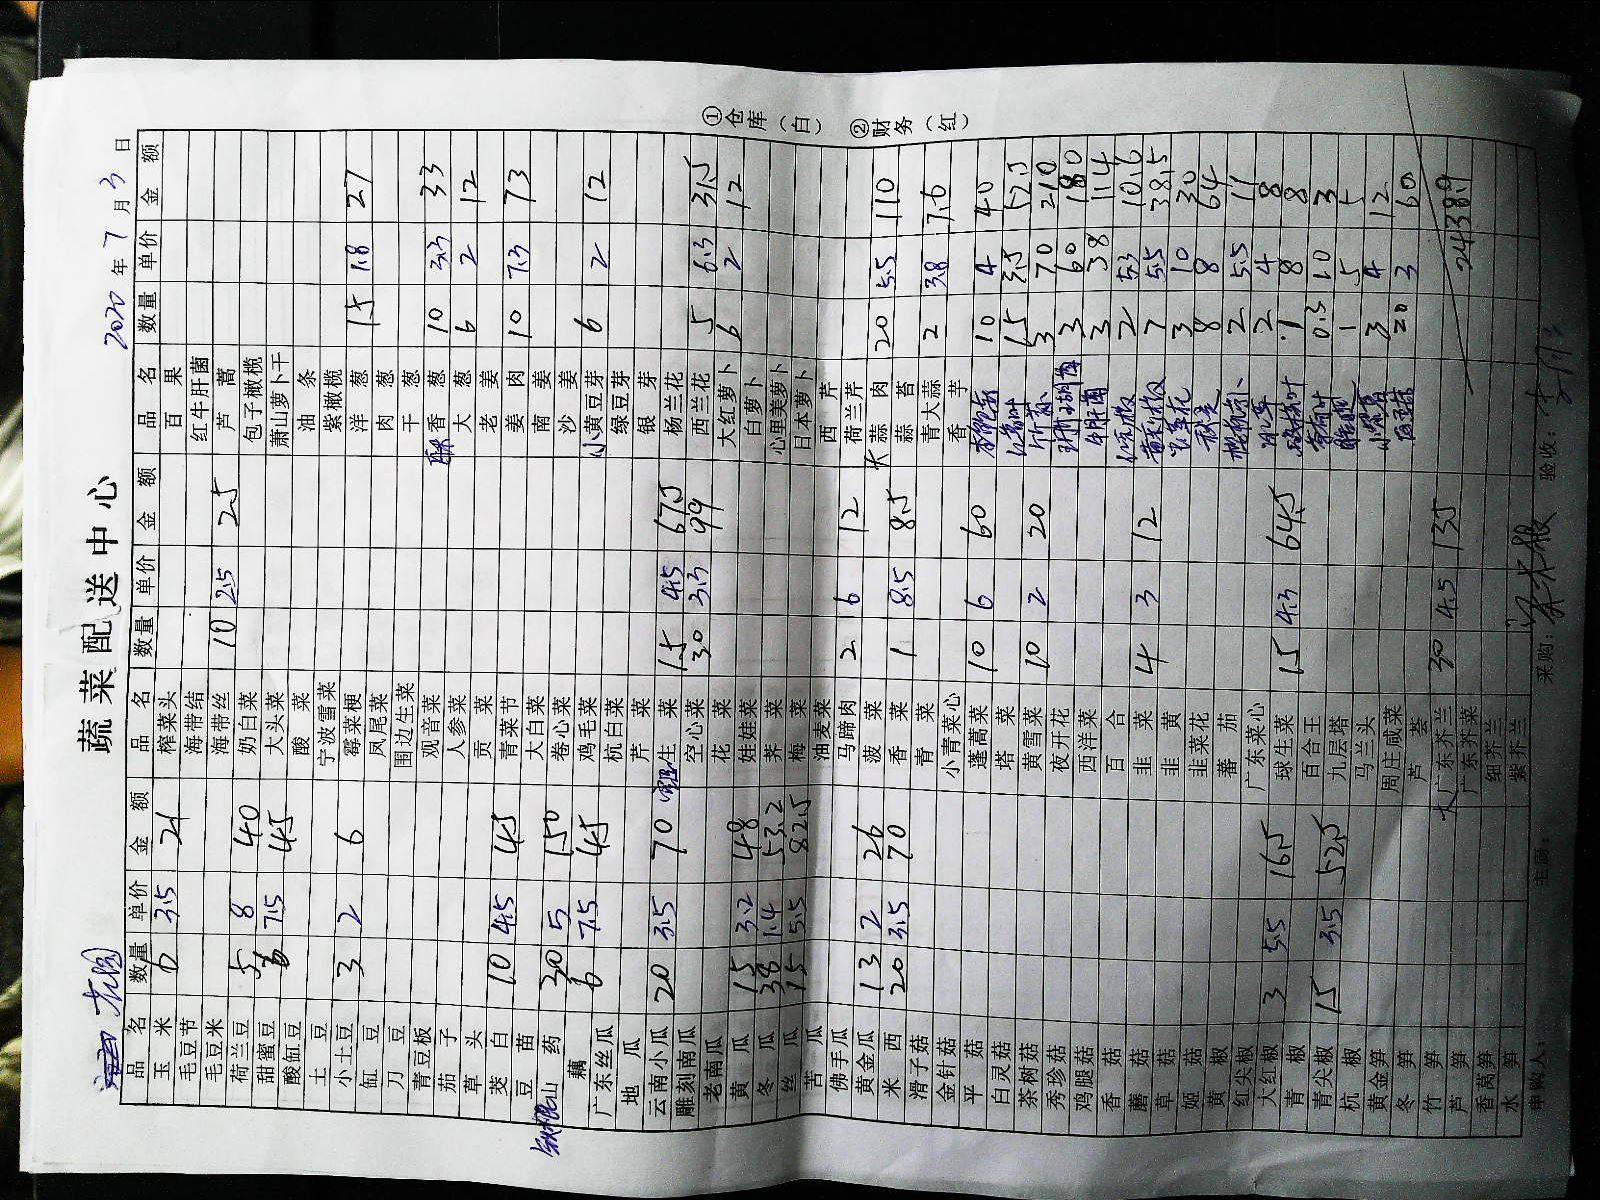 蔬菜配送中心
2020 年 7 月 3 日
品名 数量 单价 金额 品名 数量 单价 金额 品名 数量 单价 金额
玉米 6 3.5 21 榨菜头 百果
毛豆节 海带结 红牛肝菌
毛豆米 海带丝 10 2.5 25 芦蒿
荷兰豆 5 8 40 奶白菜 包子橄榄
甜蜜豆 7.5 45 大头菜 萧山萝卜干
酸缸豆 酸菜 油条
土豆 宁波雪菜 紫橄榄
小土豆 3 2 6 霉菜梗 洋葱 15 1.8 27
缸豆 凤尾菜 肉葱
刀豆 围边生菜 干葱
青豆板 观音菜 香葱 10 3.3 33
茄子 人参菜 大葱 6 2 12
草头 贡菜 老姜
茭白 10 4.5 45 青菜节 姜肉 10 7.3 73
豆苗 大白菜 南姜
铁棍山药 30 5 150 卷心菜 沙姜
藕 6 7.5 45 鸡毛菜 小黄豆芽 6 2 12
广东丝瓜 杭白菜 绿豆芽
地瓜 芹菜 银芽
云南小瓜 20 3.5 70 生菜 15 4.5 67.5 杨兰花
雕刻南瓜 空心菜 30 3.3 99 西兰花 5 6.3 31.5
老南瓜 花菜 大红萝卜 6 2 12
黄瓜 15 3.2 48 娃娃菜 白萝卜
冬瓜 38 1.4 53.2 荠菜 心里美萝卜
丝瓜 15 5.5 82.5 梅菜 日本萝卜
苦瓜 油麦菜 西芹
佛手瓜 马蹄肉 2 6 12 荷兰芹
黄金瓜 13 2 26 菠菜 大蒜肉 20 5.5 110
米西 20 3.5 70 香菜 1 8.5 8.5 蒜苔
滑子菇 青菜 青大蒜 2 3.8 7.6
金针菇 小青菜心 香芋
平菇 蓬蒿菜 10 6 60 10 4 40
白灵菇 塔菜 15 3.5 52.5
茶树菇 黄雪菜 10 2 20 竹荪 3 70 210
秀珍菇 夜开花 3 60 180
鸡腿菇 西洋菜 牛肝菌 3 38 114
香菇 百合 2 5.3 10.6
蘑菇 韭菜 4 3 12 7 5.5 38.5
草菇 韭黄 3 10 30
姬菇 韭菜花 秋葵 8 8 64
黄椒 蕃茄 2 5.5 11
红尖椒 广东菜心 2 4 8
大红椒 3 5.5 16.5 球生菜 15 4.3 64.5 1 8 8
青椒 百合王 0.3 10 3
青尖椒 15 3.5 52.5 九层塔 1 5 5
杭椒 马兰头 3 4 12
黄金笋 周庄咸菜 20 3 60
冬笋 芦荟
竹笋 大广东芥兰 30 4.5 135
芦笋 广东芥菜 2438.9
香莴笋 细芥兰
水笋 紫芥兰
申购人: 主厨: 采购: 验收:
①仓库（白） ②财务（红）